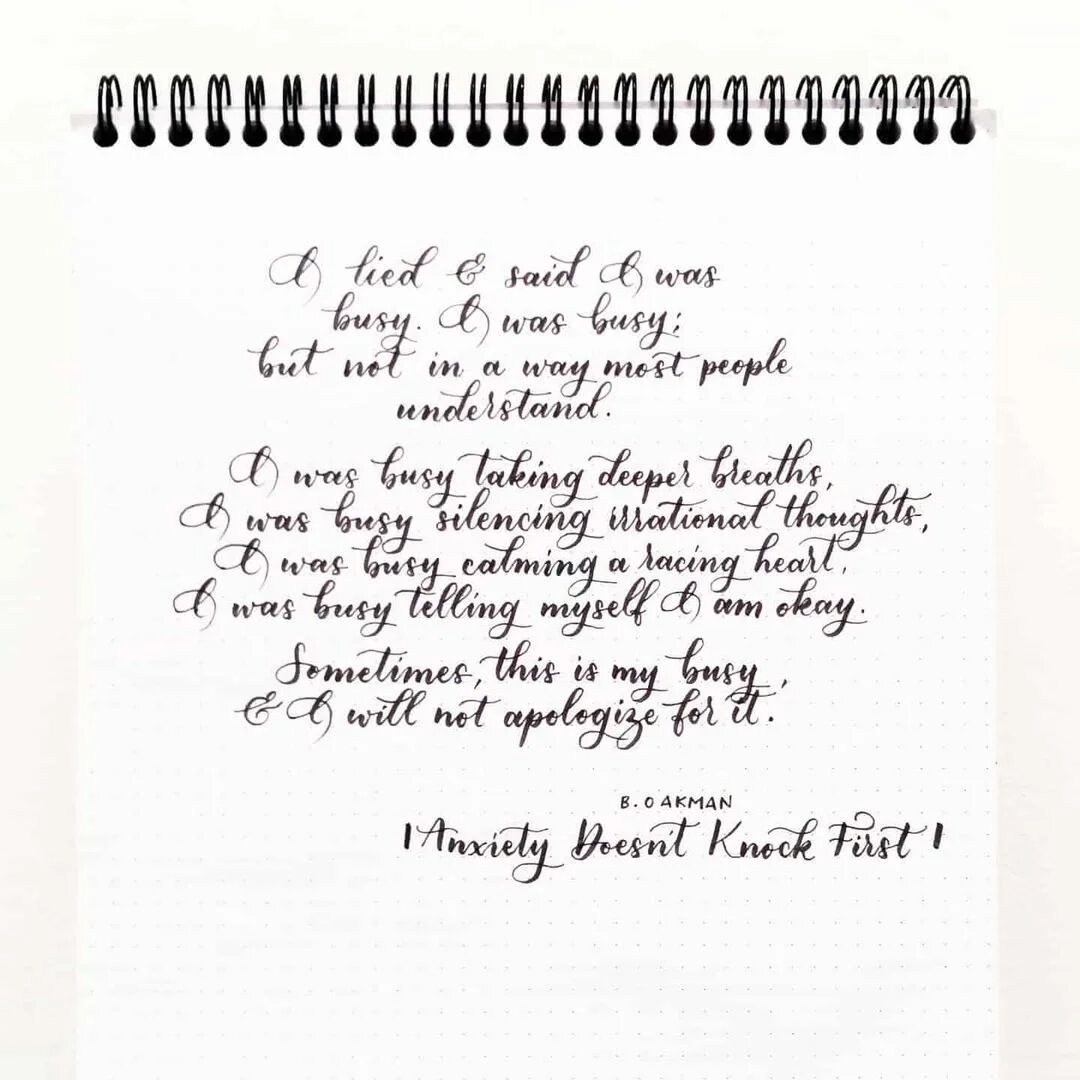 I lied & said I was
busy. I was busy;
but not in a way most people
understand.
I was busy taking deeper breaths,
I was busy silencing irrational thoughts,
I was busy calming a racing heart,
I was busy telling myself I am okay.
Sometimes, this is my busy,
& I will not apologize for it.
B. OAKMAN
| Anxiety Doesn't Knock First |